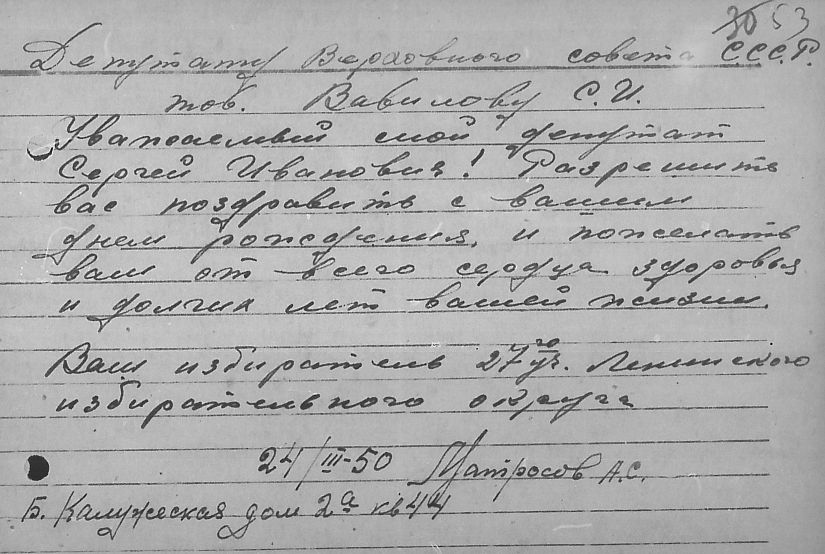 30 53
Депутату Верховного совета С.С.С.Р.
тов. Вавилову С.И.
Уважаемый мой депутат
Сергей Иванович! Разрешить
вас поздравить с вашим
днем рождения, и пожелать
вам от всего сердца здоровья
и долгих лет вашей жизни.
Ваш избиратель 27го уч. Ленинского
избирательного округа
24/III-50 Матросов А.С.
Б. Калужская дом 2а кв 44